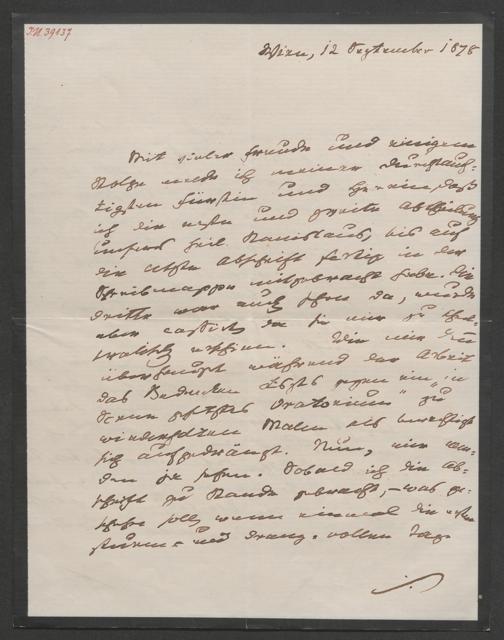 I.N. 39137
Wien, 12 September 1878
Mit vieler Freude und einigem
Stolze melde ich meiner Durchlauch-
tigsten Fürstin und Herrin, daß
ich die erste und zweite Abtheilung
unseres heil. Stanislaus, bis auf
die letzte Abschrift fertig in der
Schreibmappe mitgebracht habe. Die
dritte war auch schon da, wurde
aber cassirt, da sie mir zu
erschien. Wie mir
überhaupt während der Arbeit
das Bedenken Liszts gegen ein in
Scenen gesetztes Oratorium" zu
wiederholten Malen als berechtigt
sich aufgedrängt. Nun, wir wer-
den ja sehen. Sobald ich die Ab-
schrift zu Stande gebracht, – was ge-
schehe soll, wenn einmal die ersten
Sturm- und Drang-vollen Tage